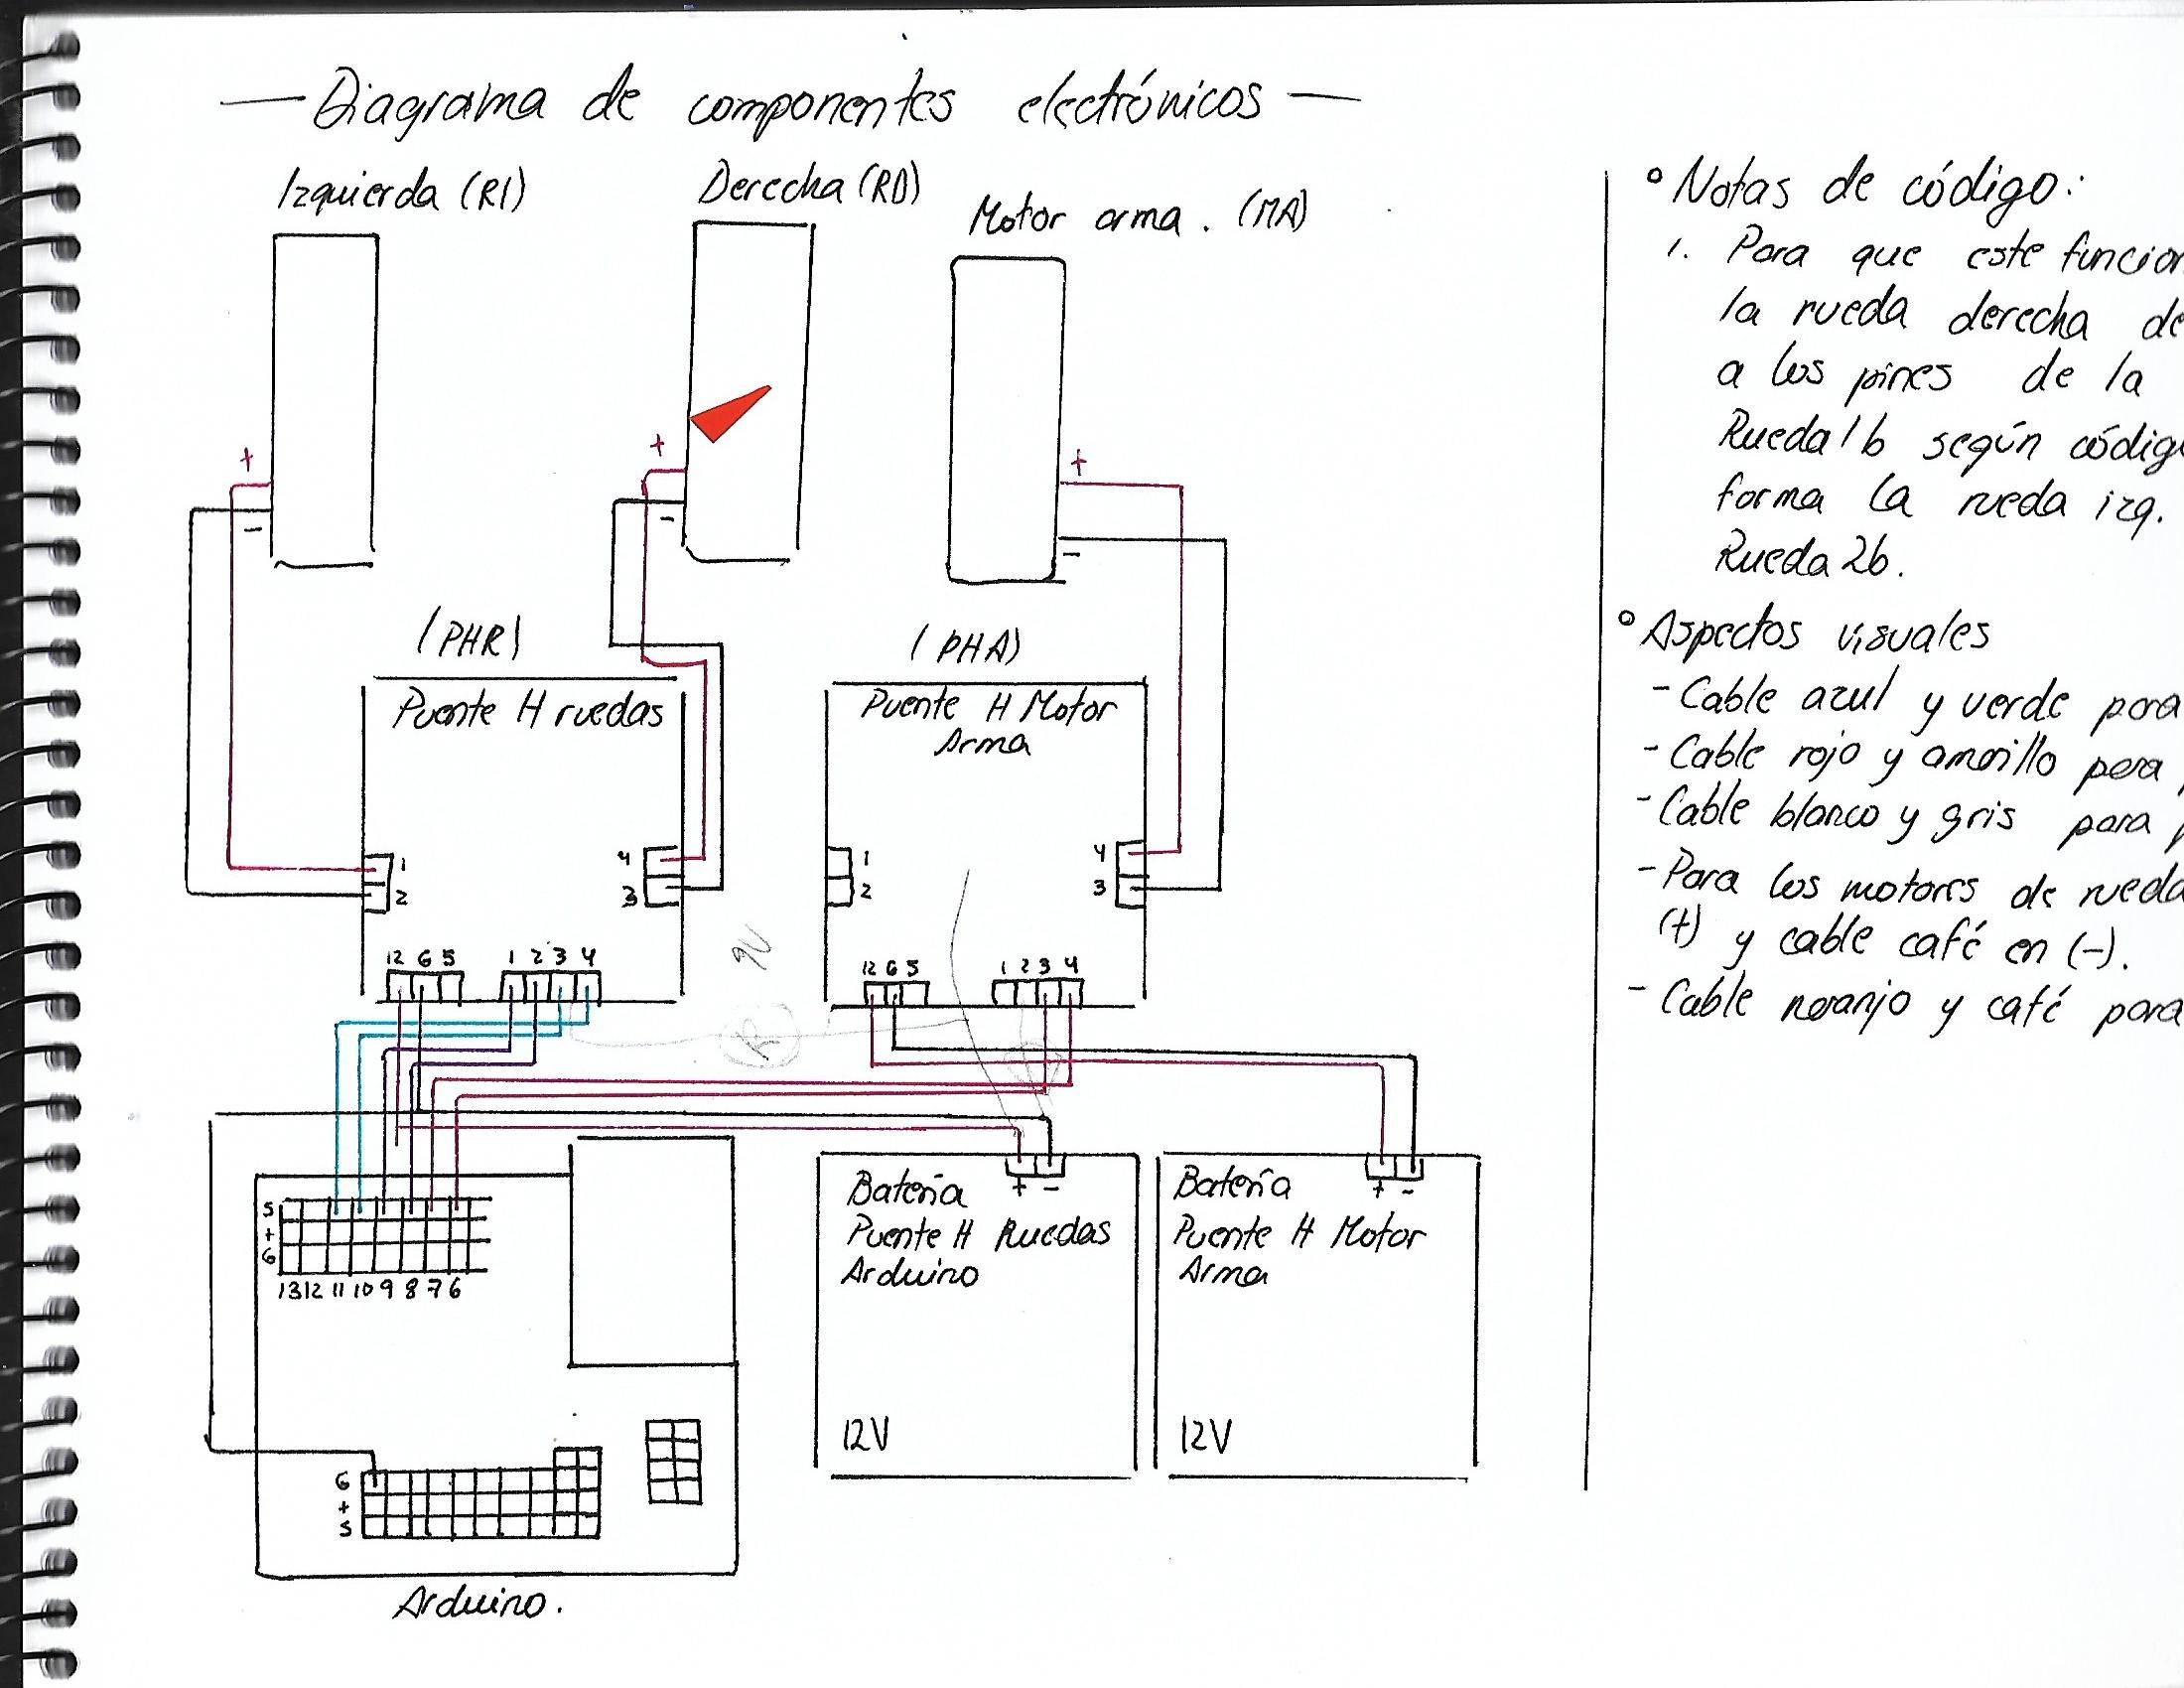 — Diagrama de componentes electrónicos —
Izquierda (RI)
Derecha (RD)
Motor arma. (MA)
+
-
+
-
+
-
(PHR)
Puente H ruedas
1
2
4
3
12 G 5
1 2 3 4
(PHA)
Puente H Motor
Arma
1
2
4
3
12 G 5
1 2 3 4
S
+
G
13 12 11 10 9 8 7 6
G
+
S
Arduino.
+ -
Batería
Puente H Ruedas
Arduino
12V
+ -
Batería
Puente H Motor
Arma
12V
° Notas de código:
1. Para que este funcion
la rueda derecha de
a los pines de la
Rueda1b según código
forma la rueda izq.
Rueda2b.
° Aspectos visuales
- Cable azul y verde para
- Cable rojo y amarillo para
- Cable blanco y gris para
- Para los motores de rueda
(+) y cable café en (-).
- Cable naranjo y café para